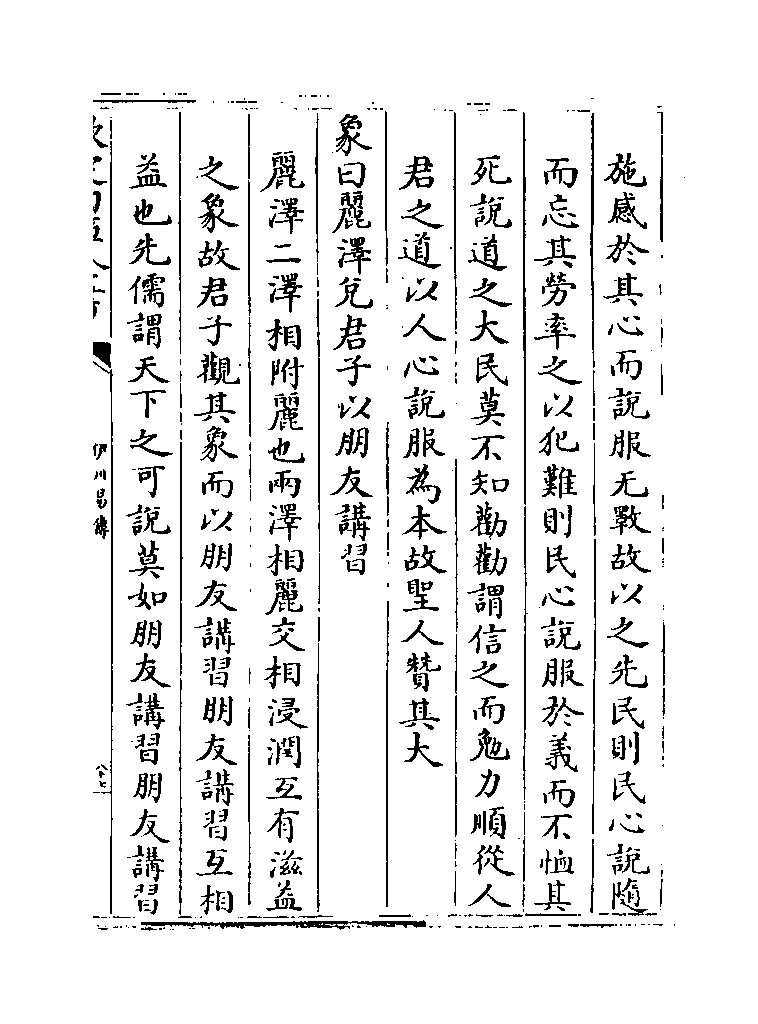 施感於其心而說服无斁故以之先民則民心說隨
而忘其勞率之以犯難則民心說服於義而不恤其
死說道之大民莫不知勸勸謂信之而勉力順從人
君之道以人心說服為本故聖人贊其大
象曰麗澤兌君子以朋友講習
麗澤二澤相附麗也兩澤相麗交相浸潤互有滋益
之象故君子觀其象而以朋友講習朋友講習互相
益也先儒謂天下之可說莫如朋友講習朋友講習
伊川易傳